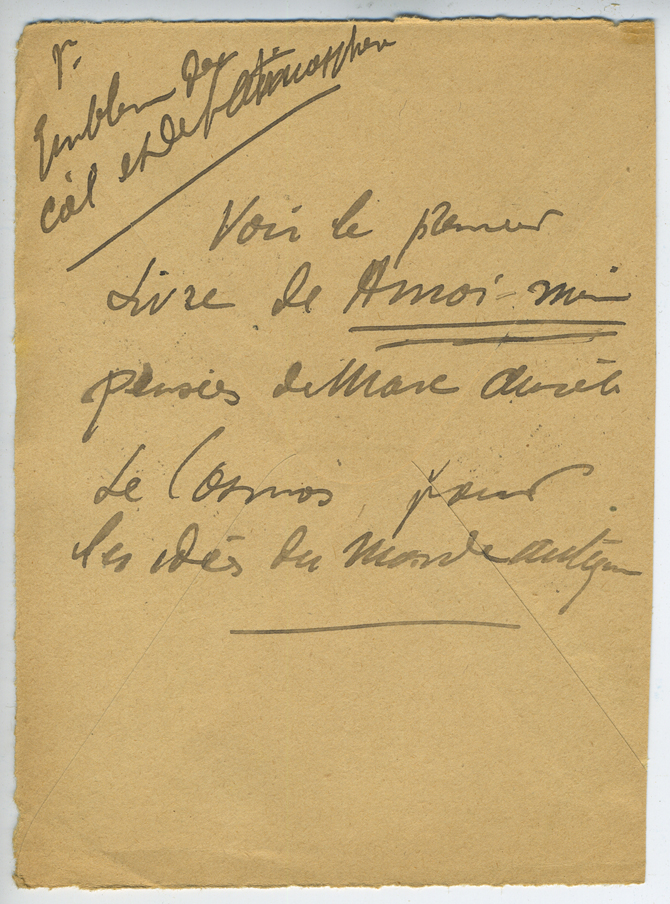 Emblem des
ciel et de l'atmosphere
Voir le premier
Livre de A moi-mêm
pensées de Marc Aurèle
Le Cosmos pour
les idées du monde antique